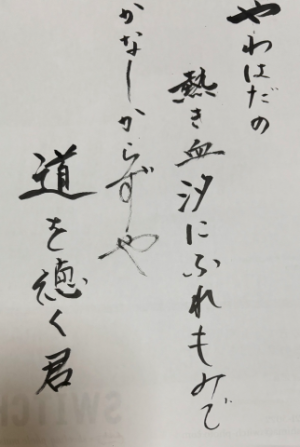 やわはだの
熱き血汐にふれもみで
かなしからずや
道を徳く君